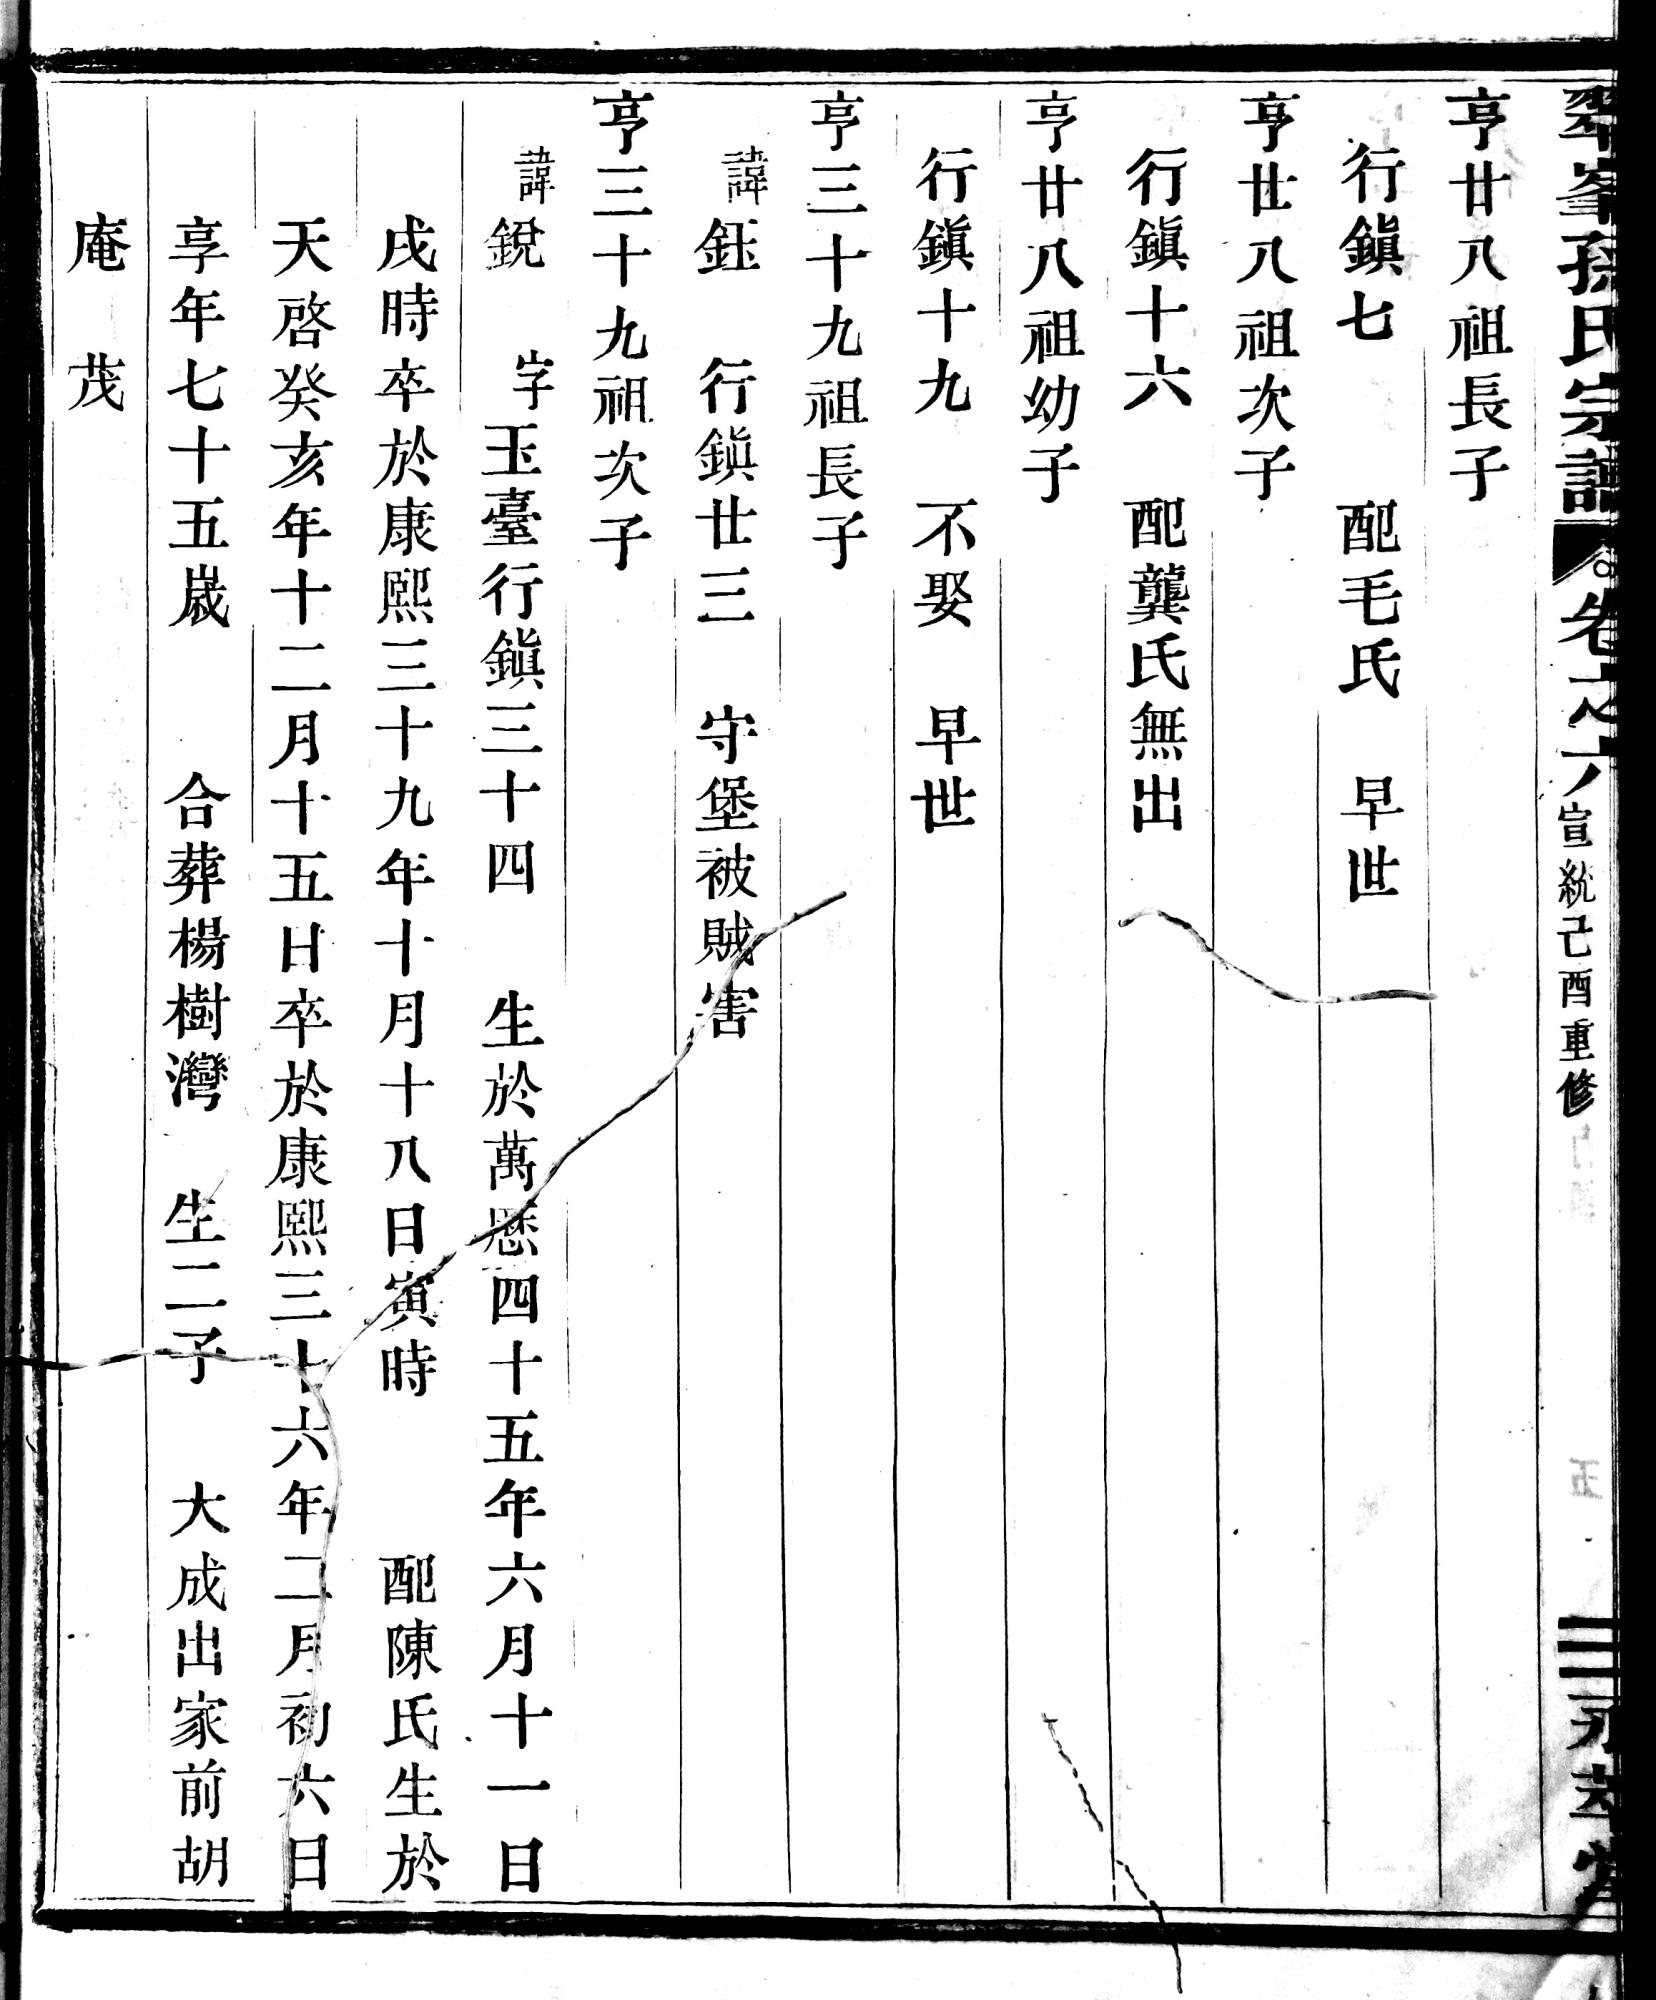 翠峯孫氏宗譜 卷之六 宣統己酉重修 三 永萃堂
亨廿八祖長子
行鎮七 配毛氏 早世
亨廿八祖次子
行鎮十六 配龔氏無出
亨廿八祖幼子
行鎮十九 不娶 早世
亨三十九祖長子
諱鈺 行鎮廿三 守堡被賊害
亨三十九祖次子
諱銳 字玉臺行鎮三十四 生於萬曆四十五年六月十一日
戌時卒於康熙三十九年十月十八日寅時 配陳氏生於
天啓癸亥年十二月十五日卒於康熙三十六年二月初六日
享年七十五歲 合葬楊樹灣 生二子 大成出家前胡
庵 茂